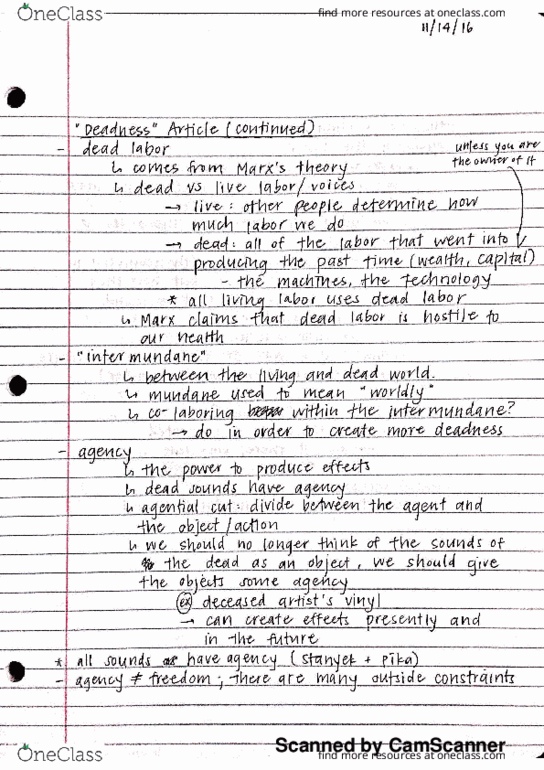 OneClass
find more resources at oneclass.com
11/14/16
"Deadness" Article (continued)
- dead labor
unless you are
the owner of it
↳ comes from Marx's theory
↳ dead vs live labor/voices
→ live: other people determine how
much labor we do
→ dead: all of the labor that went into
producing the past time (wealth, capital)
- the machines, the technology
* all living labor uses dead labor
↳ Marx claims that dead labor is hostile to
our health
- "intermundane"
↳ between the living and dead world.
↳ mundane used to mean "worldly"
↳ co-laboring within the intermundane?
→ do in order to create more deadness
- agency
↳ the power to produce effects
↳ dead sounds have agency
↳ agential cut: divide between the agent and
the object/action
↳ we should no longer think of the sounds of
the dead as an object, we should give
the objects some agency
ex deceased artist's vinyl
→ can create effects presently and
in the future
* all sounds have agency (stanyek + pika)
- agency ≠ freedom; there are many outside constraints
Scanned by CamScanner
OneClass
find more resources at oneclass.com